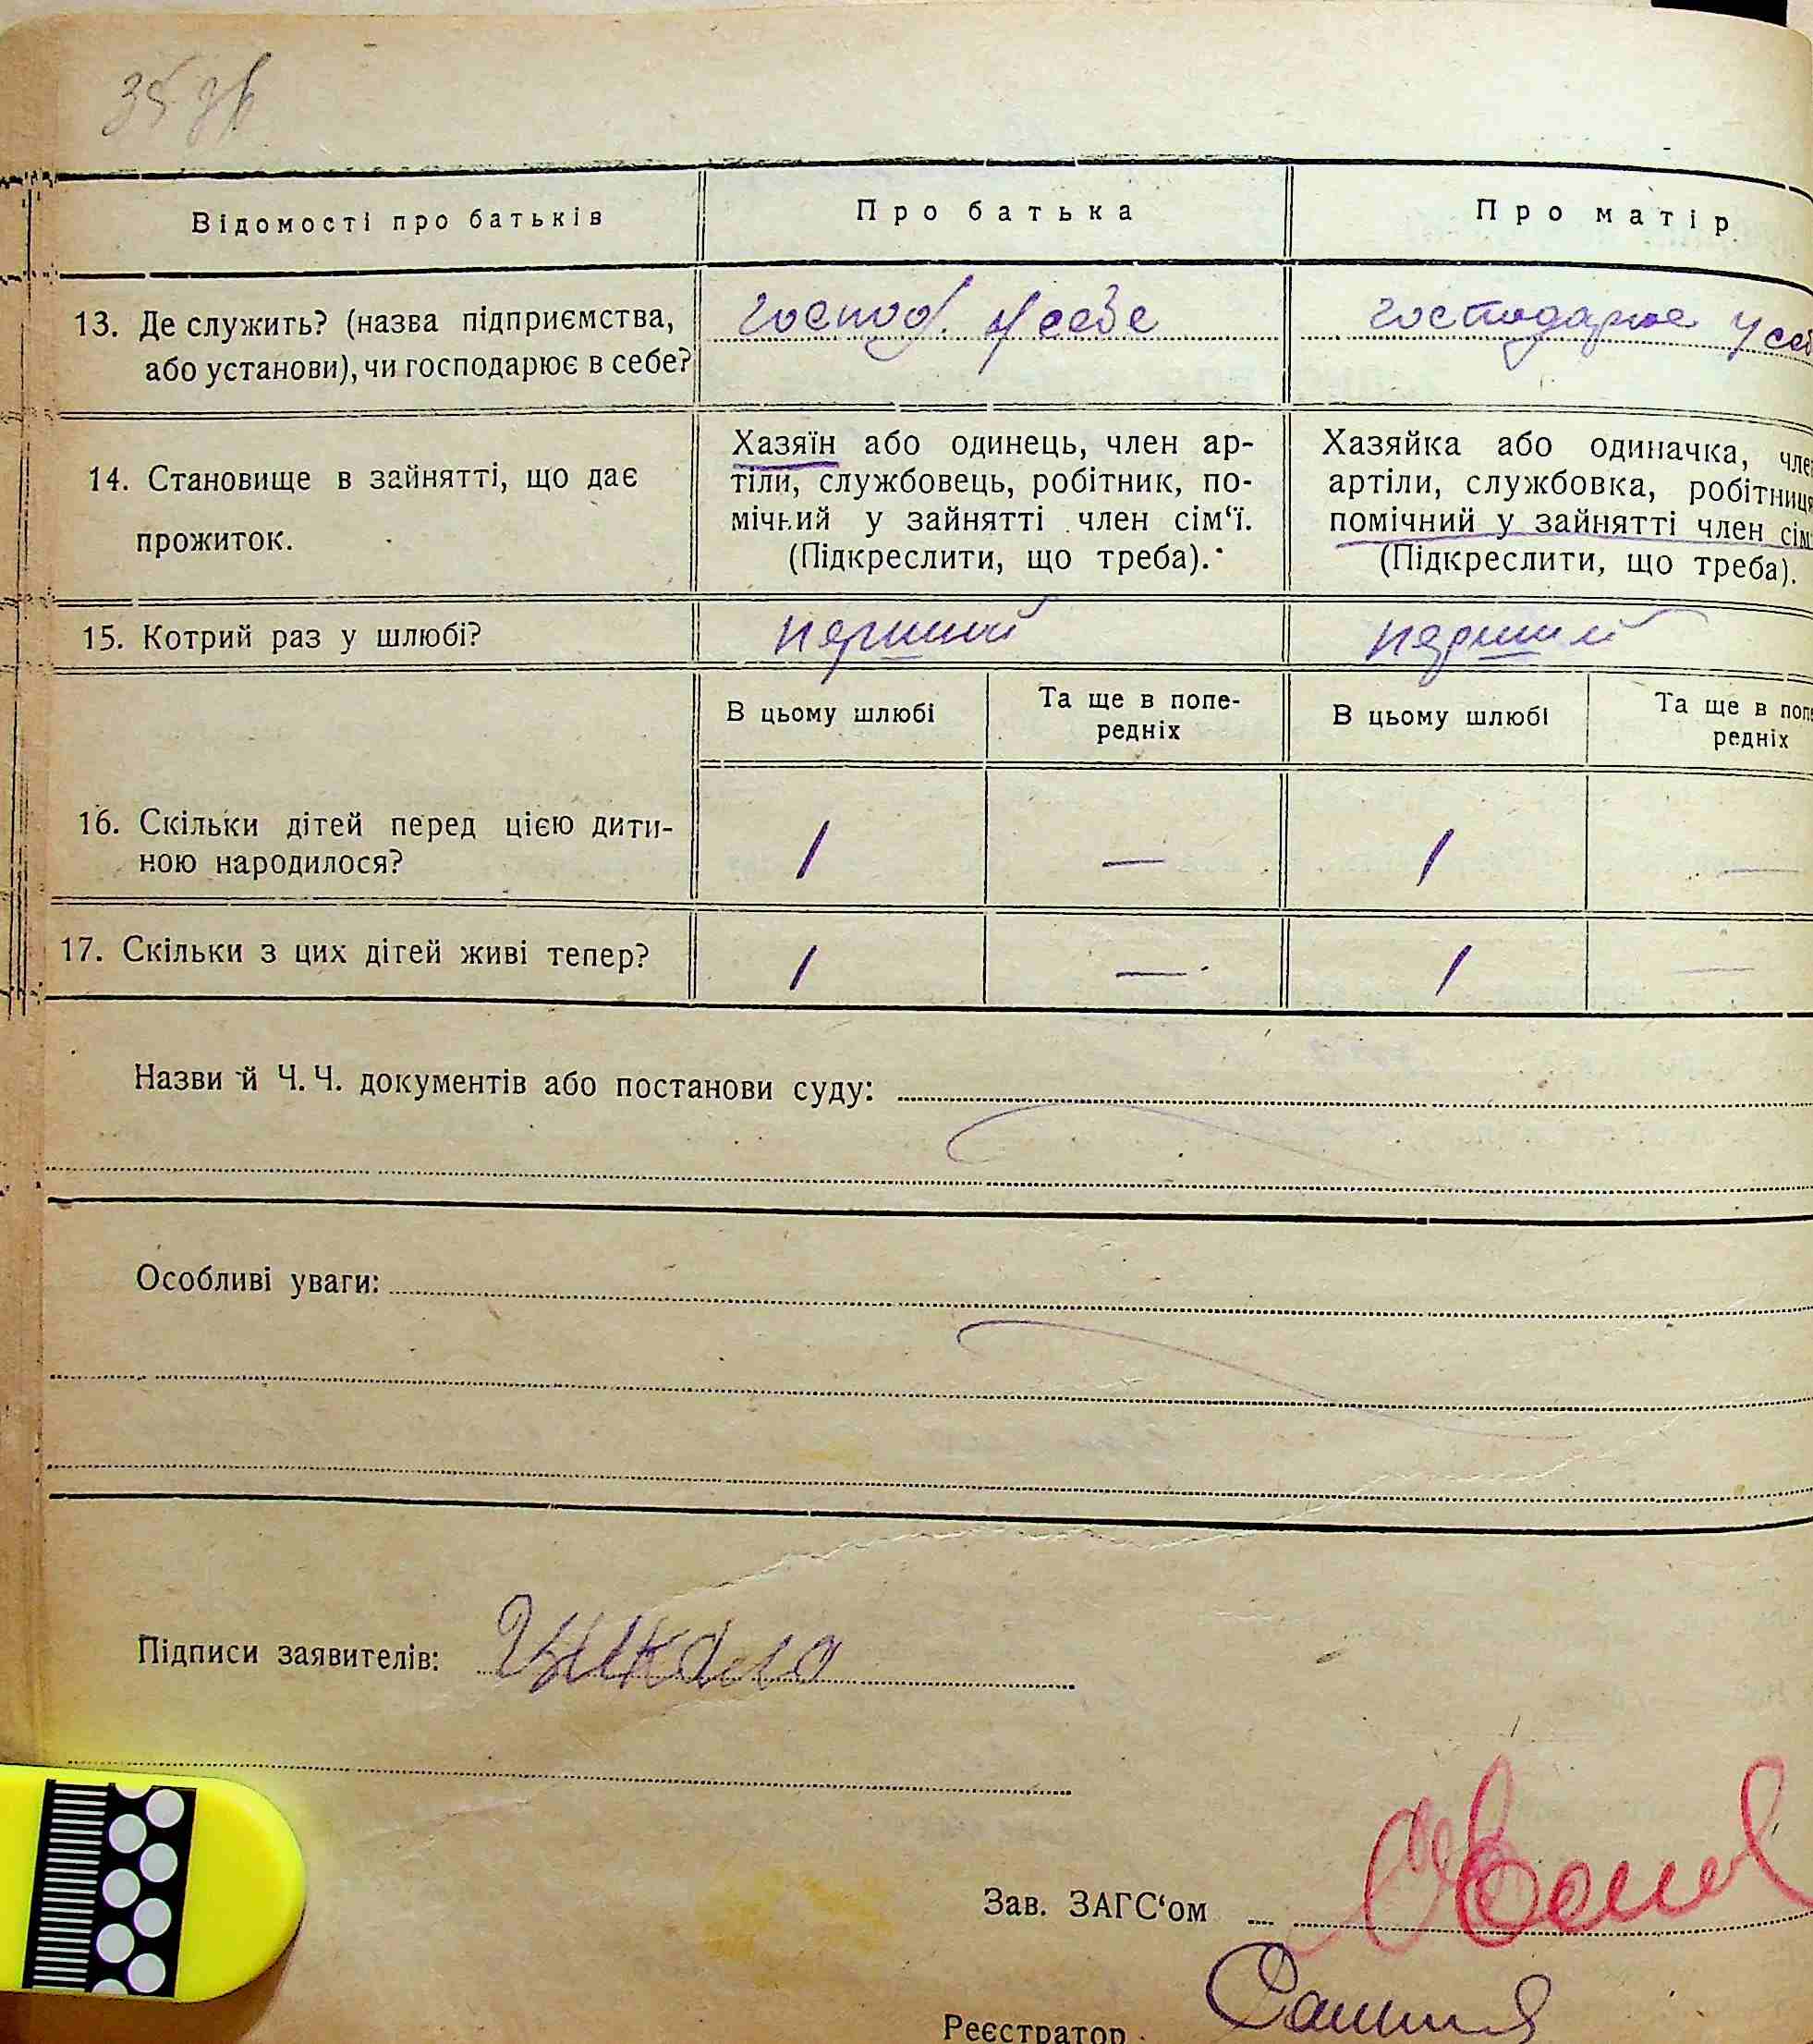 35 зв
Відомості про батьків
Про батька
Про матір
13. Де служить? (назва підприємства,
або установи), чи господарює в себе?
господ. у себе
господарює у себ
14. Становище в зайнятті, що дає
прожиток.
Хазяїн або одинець, член ар-
тіли, службовець, робітник, по-
мічний у зайнятті член сім‘ї.
(Підкреслити, що треба).
Хазяйка або одиначка, чле
артіли, службовка, робітниця
помічний у зайнятті член сім
(Підкреслити, що треба).
15. Котрий раз у шлюбі?
перший
перший
В цьому шлюбі
Та ще в попе-
редніх
В цьому шлюбі
Та ще в попе
редніх
16. Скільки дітей перед цією дити-
ною народилося?
1
—
1
—
17. Скільки з цих дітей живі тепер?
1
—
1
—
Назви й Ч. Ч. документів або постанови суду:
Особливі уваги:
Підписи заявителів: Цикало
Зав. ЗАГС‘ом
Реєстратор